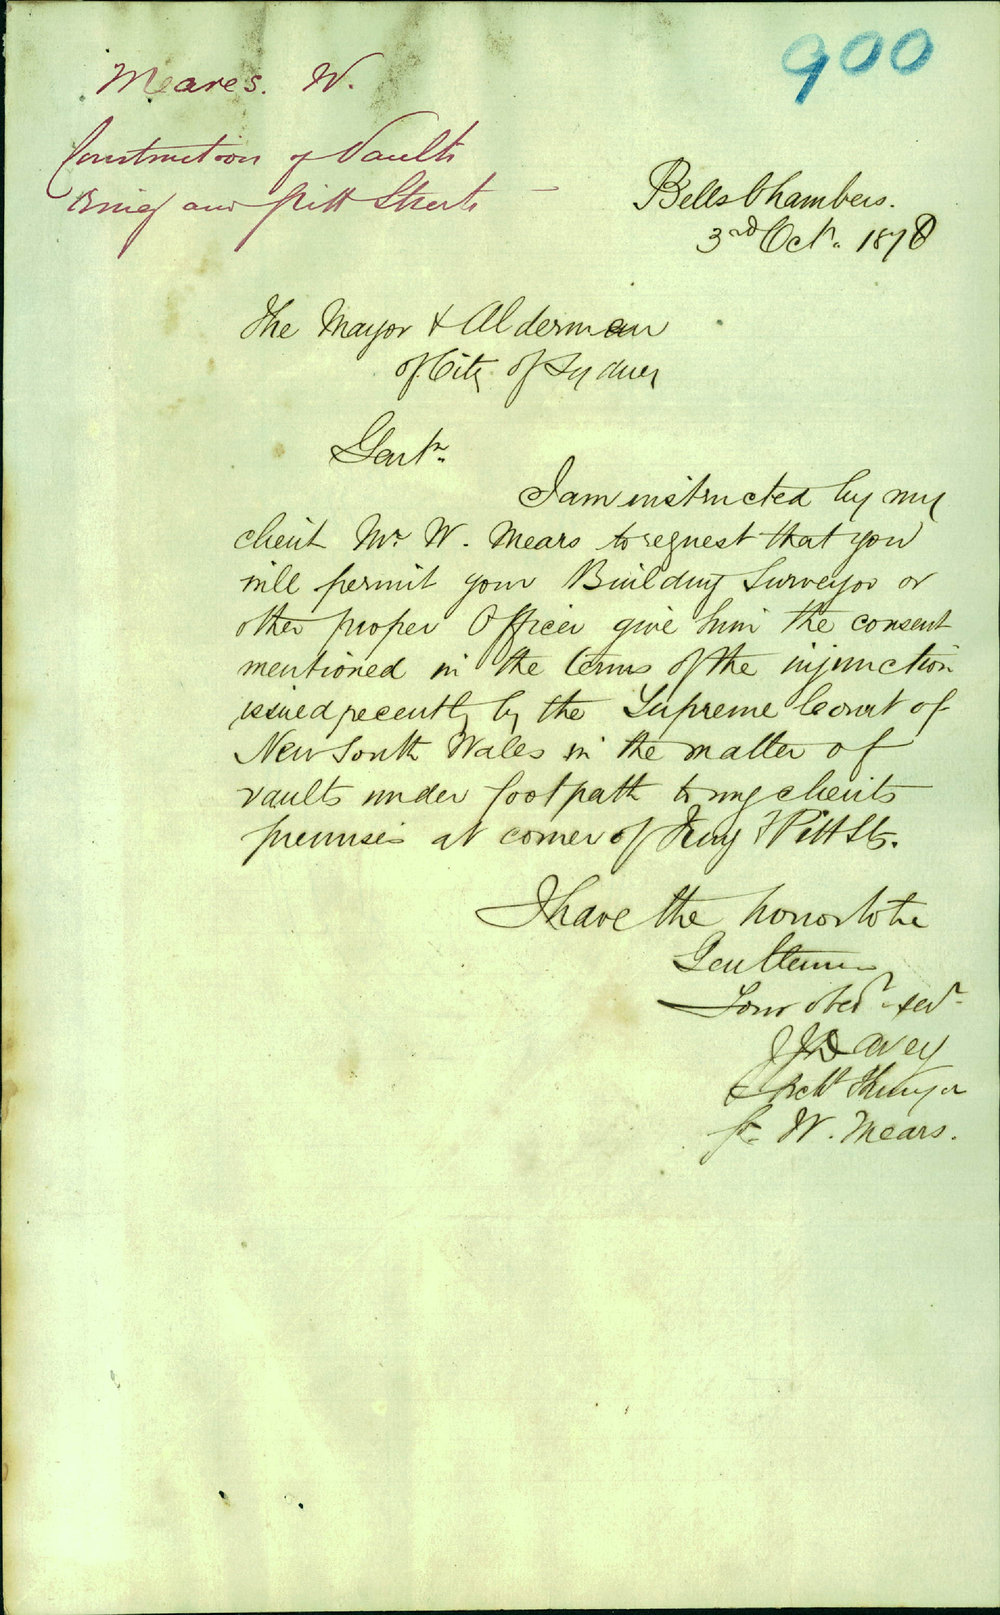 900
Meares. W.
Construction of Vaults
King and Pitt Streets
Bells Chambers.
3rd Octr. 1878
The Mayor & Alderman
of City of Sydney
Gentn.
I am instructed by my
client Mr. W. Mears to request that you
will permit your Building Surveyor or
other proper Officer give him the consent
mentioned in the terms of the injunction
issued recently by the Supreme Court of
New South Wales in the matter of
vaults under footpath to my clients
premises at corner of King & Pitt Sts.
I have the honor to be
Gentlemen
Your obedt. servt.
Davey
Archt
for W. Mears.